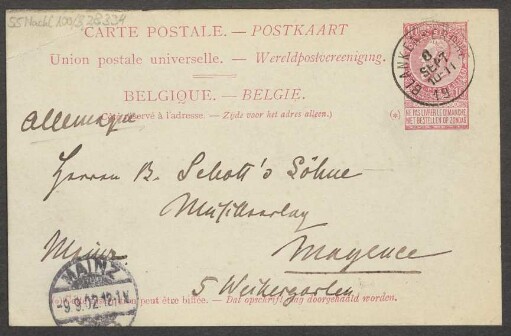 55 Nachl 100/B
CARTE POSTALE. — POSTKAART
Union postale universelle. — Wereldpostvereeniging.
BELGIQUE. — BELGIE.
(Côté réservé à l'adresse. — Zijde voor het adres alleen.)
(*)
BLANKENBERGHE
8
SEPT
10-11
NE PAS LIVRER LE DIMANCHE
NIET BESTELLEN OP ZONDAG
Allemagne
Herren B. Schott's Söhne
Musikverlag
Mainz
Mayence
5 Weihergarten
MAINZ
9.9.02.
peut être biffée. — Dat opschrift mag doorgehaald worden.